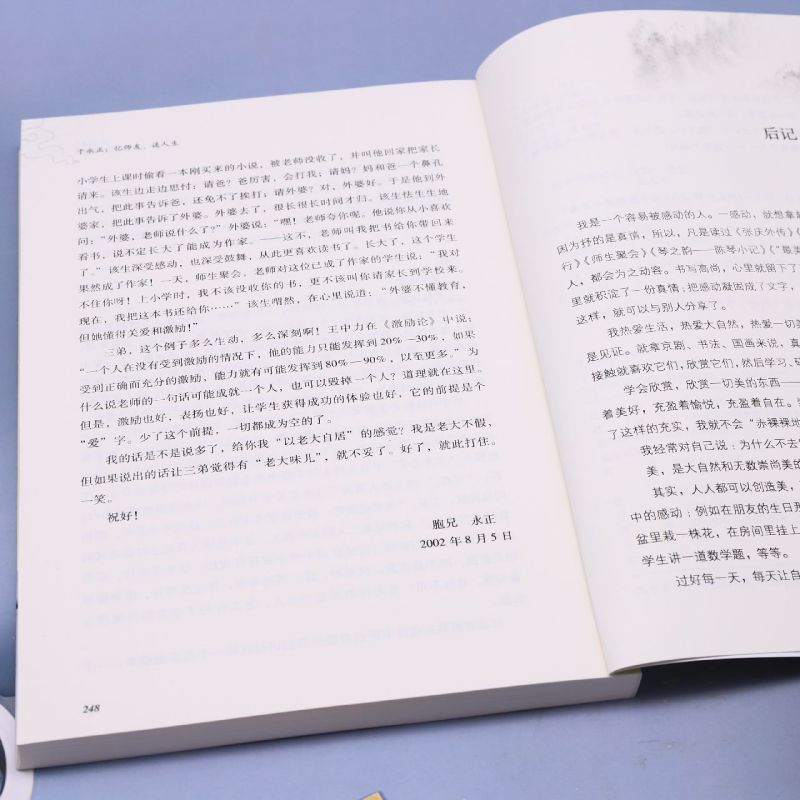 于永正：忆师友、谈人生
小学生上课时偷看一本刚买来的小说，被老师没收了，并叫他回家把家长
请来。该生边走边思忖：请爸？爸厉害，会打我；请妈？妈和爸一个鼻孔
出气，把此事告诉爸，还免不了挨打；请外婆？对，外婆好。于是他到外
婆家，把此事告诉了外婆。外婆去了，很长很长时间才归。该生怯生生地
问：“外婆，老师说什么了？”外婆说：“嘿！老师夸你呢。他说你从小喜欢
看书，说不定长大了能成为作家。——这不，老师叫我把书给你带回来
了。”该生深受感动，也深受鼓舞，从此更喜欢读书了。长大了，这个学生
果然成了作家！一天，师生聚会，老师对这位已成了作家的学生说：“我对
不住你呀！上小学时，我不该没收你的书，更不该叫你请家长到学校来。
现在，我把这本书还给你……”该生喟然，在心里说道：“外婆不懂教育，
但她懂得关爱和激励！”
三弟，这个例子多么生动，多么深刻啊！王中力在《激励论》中说：
“一个人在没有受到激励的情况下，他的能力只能发挥到20%—30%，如果
受到正确而充分的激励，能力就有可能发挥到80%—90%，以至更多。”为
什么说老师的一句话可能成就一个人，也可以毁掉一个人？道理就在这里。
但是，激励也好，表扬也好，让学生获得成功的体验也好，它的前提是个
“爱”字。少了这个前提，一切都成为空的了。
我的话是不是说多了，给你我“以老大自居”的感觉？我是老大不假，
但如果说出的话让三弟觉得有“老大味儿”，就不妥了。好了，就此打住。
一笑。
祝好！
胞兄 永正
2002年8月5日
248
后记
我是一个容易被感动的人。一感动，就想拿
因为抒的是真情，所以，凡是读过《张庆外传》
行》《师生聚会》《琴之韵——陈琴小记》《“最美
人，都会为之动容。书写高尚，心里就留下了
里就积淀了一份真情；把感动凝固成了文字，
这样，就可以与别人分享了。
我热爱生活，热爱大自然，热爱一切美
是见证。就拿京剧、书法、国画来说，真
接触就喜欢它们，欣赏它们，然后学习、研
学会欣赏，欣赏一切美的东西——
着美好，充盈着愉悦，充盈着自在。
了这样的充实，我就不会“赤裸裸地
我经常对自己说：为什么不去
美，是大自然和无数崇尚美的
其实，人人都可以创造美，
中的感动；例如在朋友的生日形
盆里栽一株花，在房间里挂上
学生讲一道数学题，等等。
过好每一天，每天让自